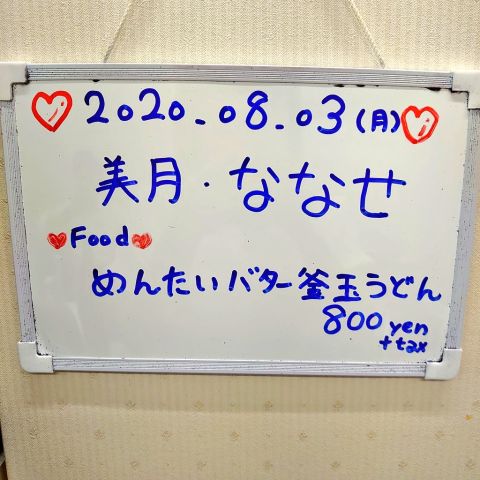 2020.08.03(月)
美月・ななせ
Food
めんたいバター釜玉うどん
800 yen
+tax